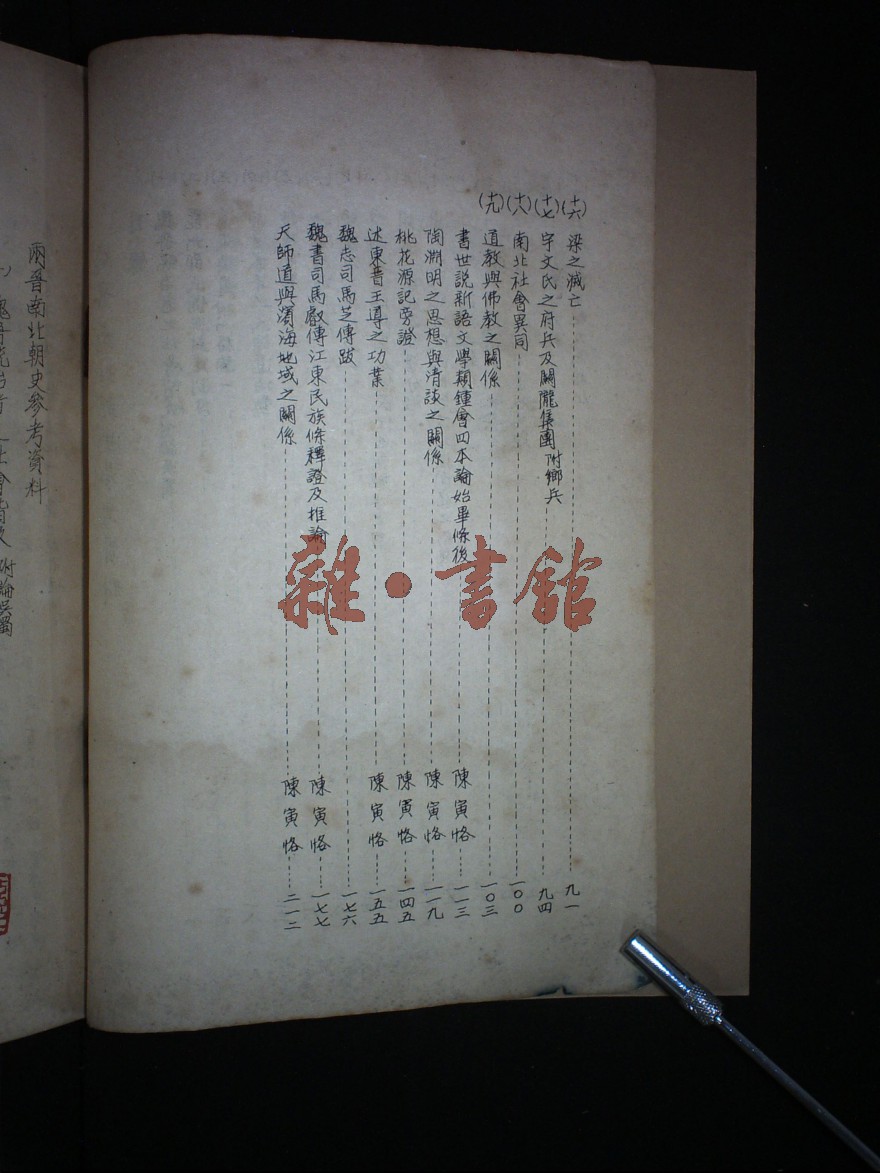 (十六) 梁之滅亡 九一
(十七) 宇文氏之府兵及關隴集團 附鄉兵 九四
(十八) 南北社會異同 一〇〇
(十九) 道教與佛教之關係 一〇三
書世說新語文學類鍾會四本論始畢條後 陳寅恪 一一三
陶淵明之思想與清談之關係 陳寅恪 一一九
桃花源記旁證 陳寅恪 一四五
述東晋王導之功業 陳寅恪 一五五
魏志司馬芝傳跋 一七六
魏書司馬叡傳江東民族條釋證及推論 陳寅恪 一七七
天師道與濱海地域之關係 陳寅恪 二一二
雜·書館
兩晉南北朝史參考資料
附論吳蜀